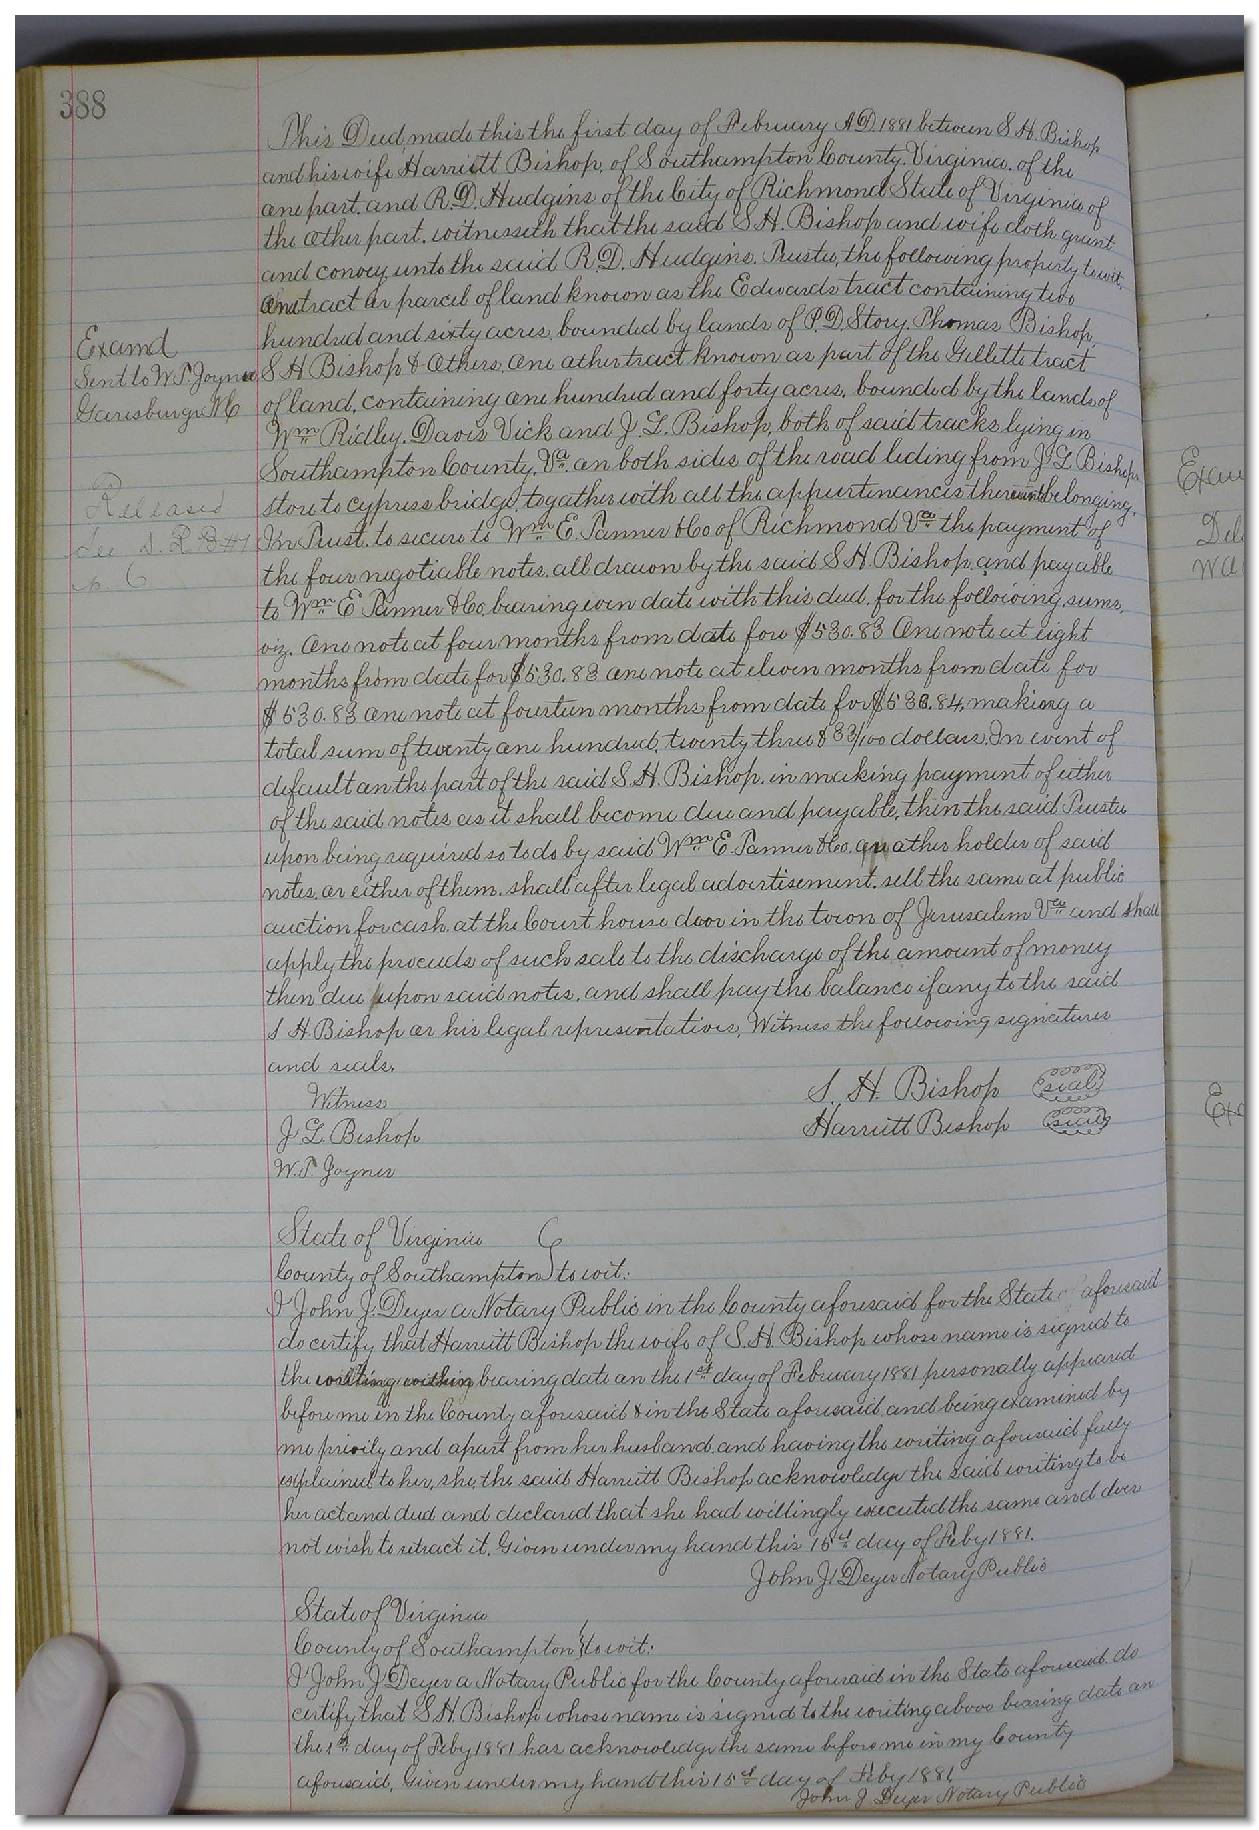 388
This Deed, made this the first day of February A.D. 1881 between S. H. Bishop
and his wife Harriett Bishop, of Southampton County. Virginia. of the
one part. and R. D. Hudgins of the City of Richmond State of Virginia of
the other part. witnesseth that the said S. H. Bishop and wife doth grant
and convey unto the said R. D. Hudgins. Trustee, the following property to wit.
One tract or parcel of land known as the Edwards tract containing two
hundred and sixty acres, bounded by lands of P. D. Story. Thomas Bishop,
S H Bishop & others, one other tract known as part of the Gillette tract
of land, containing one hundred and forty acres, bounded by the lands of
Wm Ridley. Davis Vick and J. L. Bishop, both of said tracks lying in
Southampton County, Va. on both sides of the road leding from J. L. Bishops
store to cypress bridge, togather with all the appurtenances thereunto belonging.
In Trust. to secure to Wm E. Tanner & Co of Richmond Va the payment of
the four negotiable notes, all drawn by the said S. H. Bishop, and payable
to Wm E Tanner & Co, bearing even date with this deed, for the following sums,
viz. One note at four months from date for $530.83 One note at eight
months from date for $530.83 one note at eleven months from date for
$530.83 one note at fourteen months from date for $530.84, making a
total sum of twenty one hundred, twenty three & 33/100 dollars. In event of
default on the part of the said S. H. Bishop. in making payment of either
of the said notes as it shall become due and payable, then the said Trustee
upon being required so to do by said Wm E. Tanner & Co. or other holder of said
notes, or either of them. shall after legal advertisement, sell the same at public
auction for cash, at the Court house door in the town of Jerusalem Va and shall
apply the proceeds of such sale to the discharge of the amount of money
then due upon said notes, and shall pay the balance if any to the said
S H Bishop or his legal representatives, Witness the following signatures
and seals.
Examd
Sent to W. T. Joyner
Garesburgh NC
Released
See D. R. B #1
p. 6
Witness S. H. Bishop seal
J L Bishop Harriett Bishop seal
W. T. Joyner
State of Virginia
County of Southampton to wit:
I John J. Deyer a Notary Public in the County aforesaid for the State of aforesaid
do certify that Harriett Bishop the wife of S. H. Bishop whose name is signed to
the writing within bearing date on the 1st day of February 1881 personally appeared
before me in the County aforesaid & in the State aforesaid, and being examined by
me privily and apart from her husband, and having the writing aforesaid fully
explained to her, she, the said Harriett Bishop acknowledge the said writing to be
her act and deed and declared that she had willingly executed the same and does
not wish to retract it. Given under my hand this 15th day of Feby 1881.
John J. Deyer Notary Public
State of Virginia
County of Southampton to wit:
I John J Deyer a Notary Public for the County aforesaid in the State aforesaid. do
certify that S. H. Bishop whose name is signed to the writing above bearing date on
the 1st day of Feby 1881 has acknowledge the same before me in my County
aforesaid, Given under my hand this 15th day of Feby 1881
John J Deyer Notary Public
Exam
Del
Exa